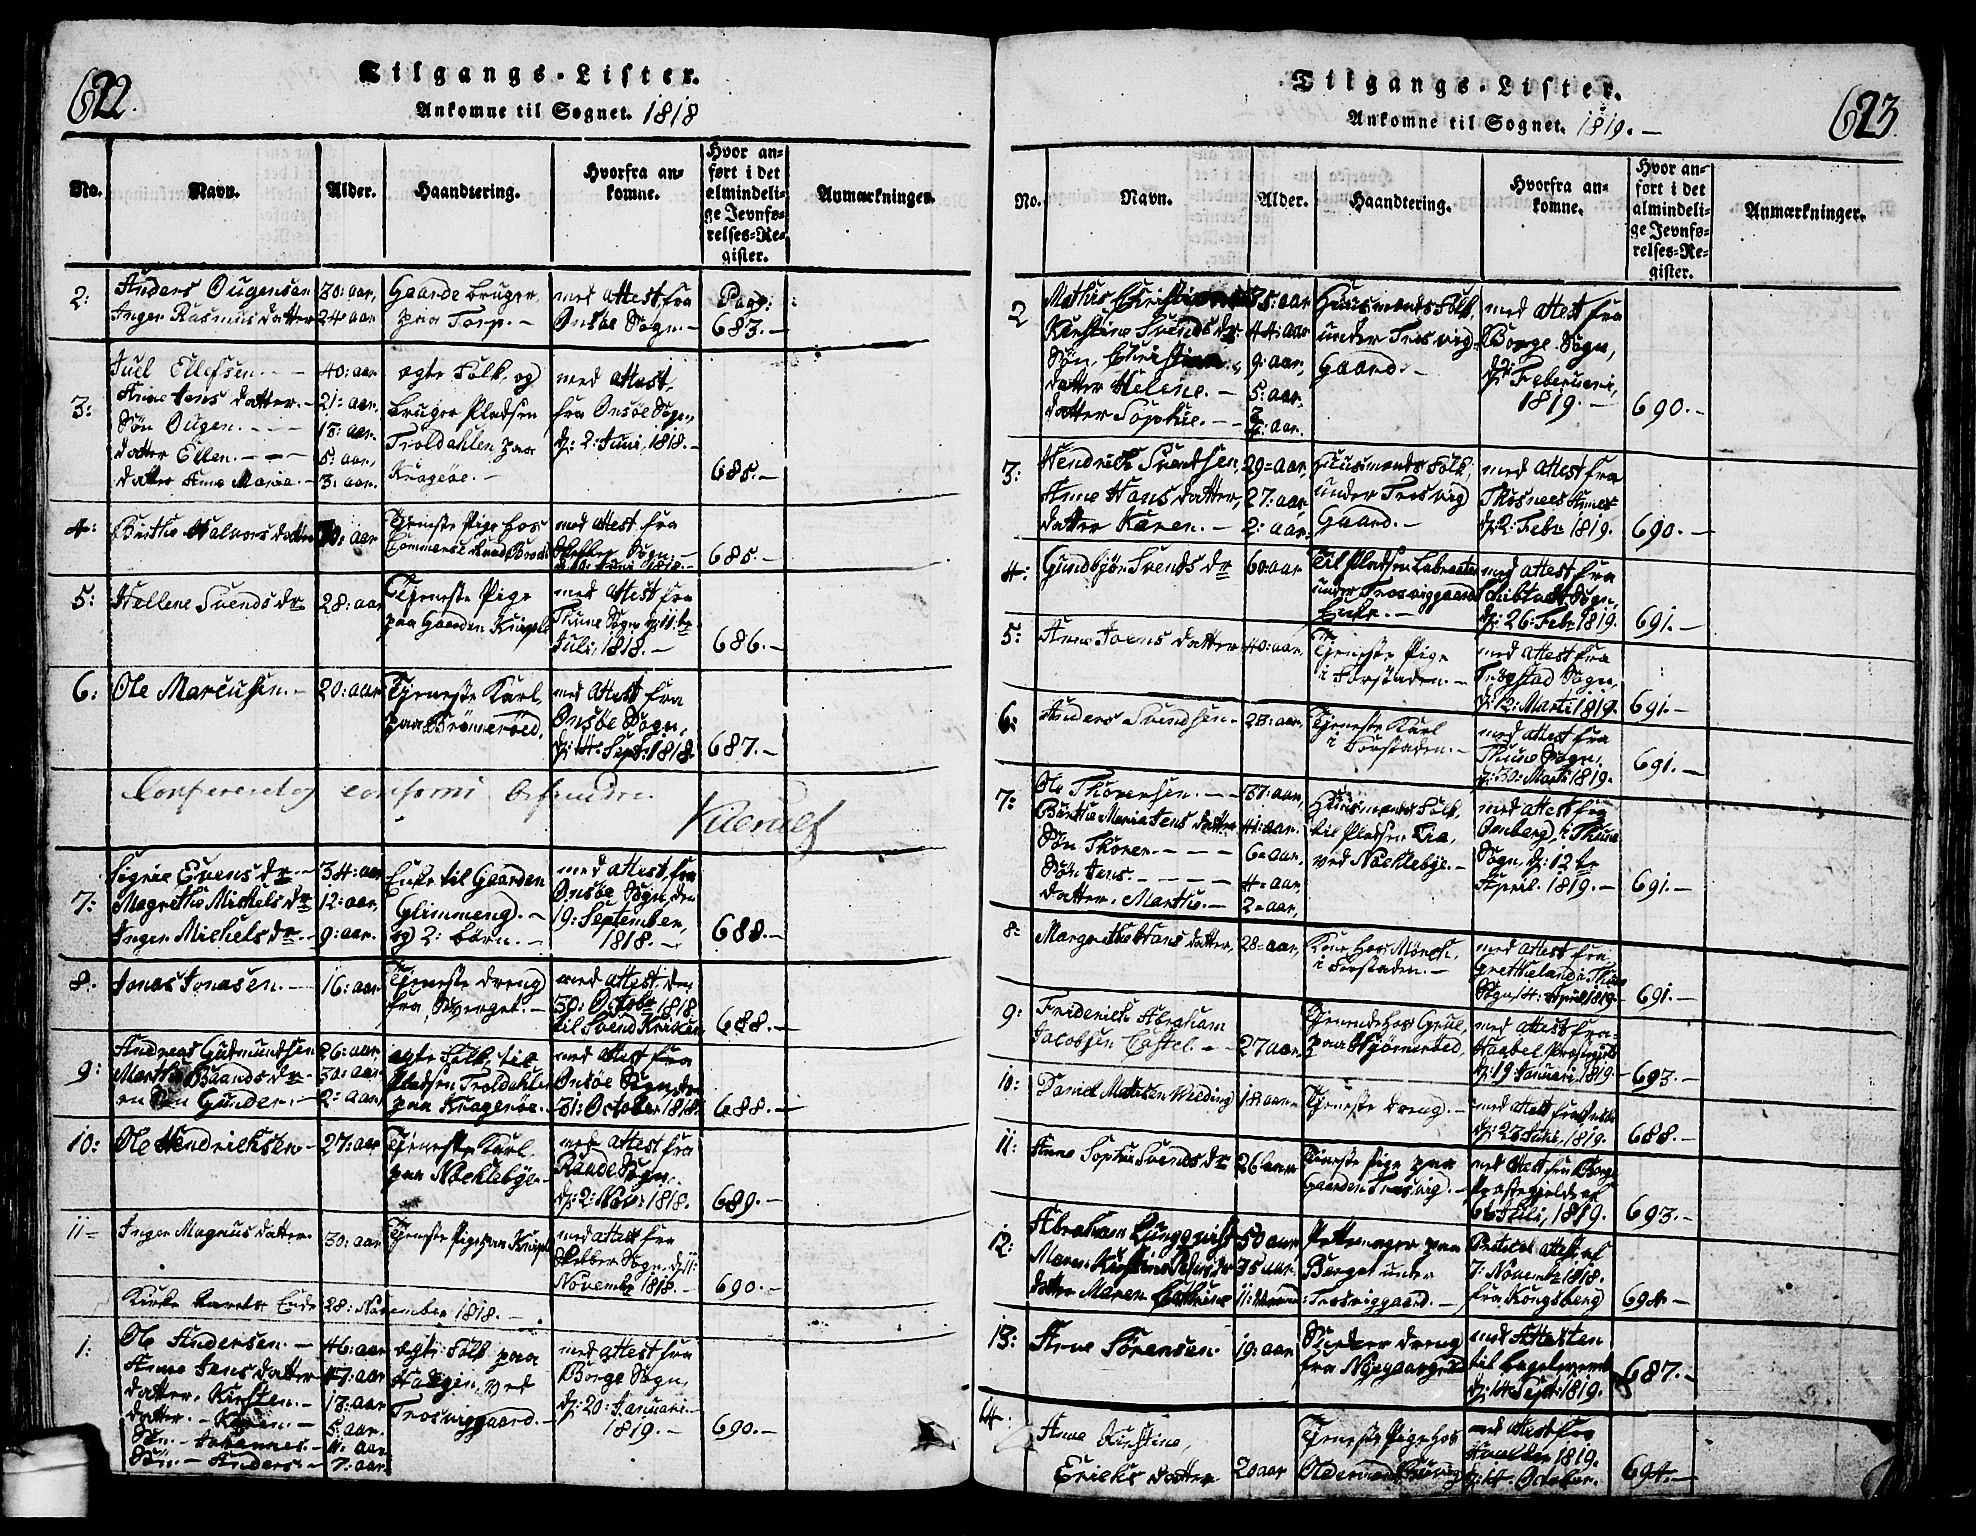 622.
Tilgangs-Lister.
Ankomne til Sognet. 1818
No.
Navn.
Alder.
Haandtering.
Hvorfra an=
komne.
Hvor an=
ført i det
almindeli=
ge Jevnfø=
relses=Re=
gister.
Anmærkninger.
2:
Anders Ougensen
Inger Rasmusdatter
30: aar,
24: aar
Gaardebruger
paa Torp. -
med attest fra
Onsøe Sogn. -
Pag:
683. -
3:
Juel Ellefsen. - -
Anne Jens datter. -
Søn Ougen. - - -
datter Ellen. - - -
datter Anne Marie. -
40: aar
21: aar,
13: aar.
5: aar,
3: aar.
ægte Folk og
bruger Pladsen
Troldahlen paa
Kragerøe. -
med attest,
fra Onsøe Sogn,
d: 2: Juni, 1818. -
685. -
4:
Birthe Halvors datter
aar
Tjeneste Pige hos
med attest fra
Sogn. -
Juni 1818. -
685 -
5:
Hellene Svends dr
28: aar
Tjeneste Pige
paa Gaarden
med attest fra
Thune Sogn d: 11te
Juli, 1818. -
686. -
6:
Ole Marcussen. -
20: aar
Tjeneste Karl
paa Brönneröed.
med attest fra
Onsøe Sogn,
d: 14: Sept: 1818.
687. -
Confereret og conform befunden
7:
Sigrie Evens dr -
Magrethe Michels dr
Inger Michels dr. -
34: aar
12: aar,
9: aar.
Enke til Gaarden
Glimmeng. -
og 2: børn. -
med attest, fra
Onsøe Sogn, den
19: September,
1818. -
688. -
8.
Jonas Jonasen. -
16: aar
Tjeneste dreng
fra Sverget. -
med attest. den
30: Octobr 1818.
til Svend
688. -
9:
Andreas Gudmundsen
Marthe Baands dr -
en Søn Gunder. -
26: aar
30: aar
2: aar
ægte Folk til
Pladsen Troldahlen
paa Kragerøe. -
med attest fra
Onsøe Sogn, d:
31: October 1818.
688. -
10:
Ole Hendrichsen -
27: aar
Tjeneste Karl.
paa Nochlebye. -
med attest fra
Raade Sogn.
d: 2: Nov: 1818.
689. -
11 -
Inger Magnus datter
30: aar
Tjeneste Pige paa
med attest fra
Sogn, d: 11:
Novembr 1818. -
690. -
Kirke Aarets Ende 28: November 1818. -
1:
Ole Andersen. -
Anne Jens datter
datter. Kirsten. -
datter. - Karen. -
Søn. - Johannes. -
Søn - Anders. -
46: aar
47: aar
13: aar
5: aar
4: aar
7: aar
ægte Folk paa
ved
Trosviggaard. -
med attest fra
Borge Sogn,
d: 20: Januari -
1819. -
690. -
623.
Tilgangs-Lister.
Ankomne til Sognet. 1819. -
No.
Navn.
Alder.
Haandtering.
Hvorfra an=
komne.
Hvor an=
ført i det
almindeli=
ge Jevnfø=
relses=Re=
gister.
Anmærkninger.
2
Mathis
Kirstine Svends dr.
Søn, Christian
datter Helene. -
datter Sophie. - -
35: aar
44: aar
9: aar,
5: aar,
aar.
Huusmands Folk,
under Trosvig-
Gaard. -
med attest fra
Borge Sogn,
d: Februari,
1819. -
690. -
3:
Hendrich Svendsen,
Anne Hans datter,
datter Karen. -
29= aar,
27: aar
2: aar
Huusmands Folk
under Trosvig
Gaard. -
med attest fra
d: 2: Febr 1819.
690. -
4:
Gundbjör Svends dr
60: aar
Til Pladsen
under Trosviggaard
Enke. -
med attest fra
Sogn,
d: 26: Febr 1819.
691. -
5:
Anne Joens datter
40: aar,
Tjeneste Pige
i Forstaden. -
med attest fra
Trögstad Sogn,
d: 12: Marti 1819.
691. -
6:
Anders Svendsen. -
28: aar,
Tjeneste Karl
i Forstaden. -
med attest fra
Thune Sogn,
d: 30: Marti 1819.
691. -
7:
Ole Thoresen. - -
Birthe Maria Jens datter
Søn Thorer. - - -
Søn Jens. - - - -
datter. Marthe. -
37: aar,
41: aar.
6= aar,
4= aar,
2= aar,
Huusmands Folk,
til Pladsen Lia,
ved Nochlebye. -
med attest fra
i Thune
Sogn, d: 12te
April. 1819. -
691. -
8=
Margrethe Hans datter,
28= aar,
Kone hos Mönch
i Forstaden. -
med attest fra
i Thune
Sogn 14: April 1819. -
691. -
9:
Friderich Abraham
Jacobsen Castel. - -
27 aar.
Tjenende hos
paa Hjörneröed,
med attest fra
Præstegjeld
d: 19 Januari 1819. -
693. -
10:
Daniel Mathisen Welding
18 aar
Tjeneste dreng. -
med attest fra
d: 23 Juni, 1819.
688. -
11:
Anne Sophie Svends dr
26 aar
Tjeneste Pige paa
Gaarden Trosvig. -
med attest fra Borge
Præstegjeld af
Juli, 1819.
693. -
12:
Abraham Ljungqvist
Maren Kirstine
datter Maren Cathrine
50 aar
35 aar.
11:
Pottemager paa
Berget under
Trosviggaard. -
attest af
7: Novembr 1818.
fra Kongsberg
694. -
13:
Arne Sörensen.
19: aar
dreng
fra
med Attesten
til
d: 14 Sept: 1819.
687. -
14.
Anne Kirstine,
Erichs datter
20 aar
Tjeneste Pige hos
med attest fra
1819.
d: 14: October.
694. -